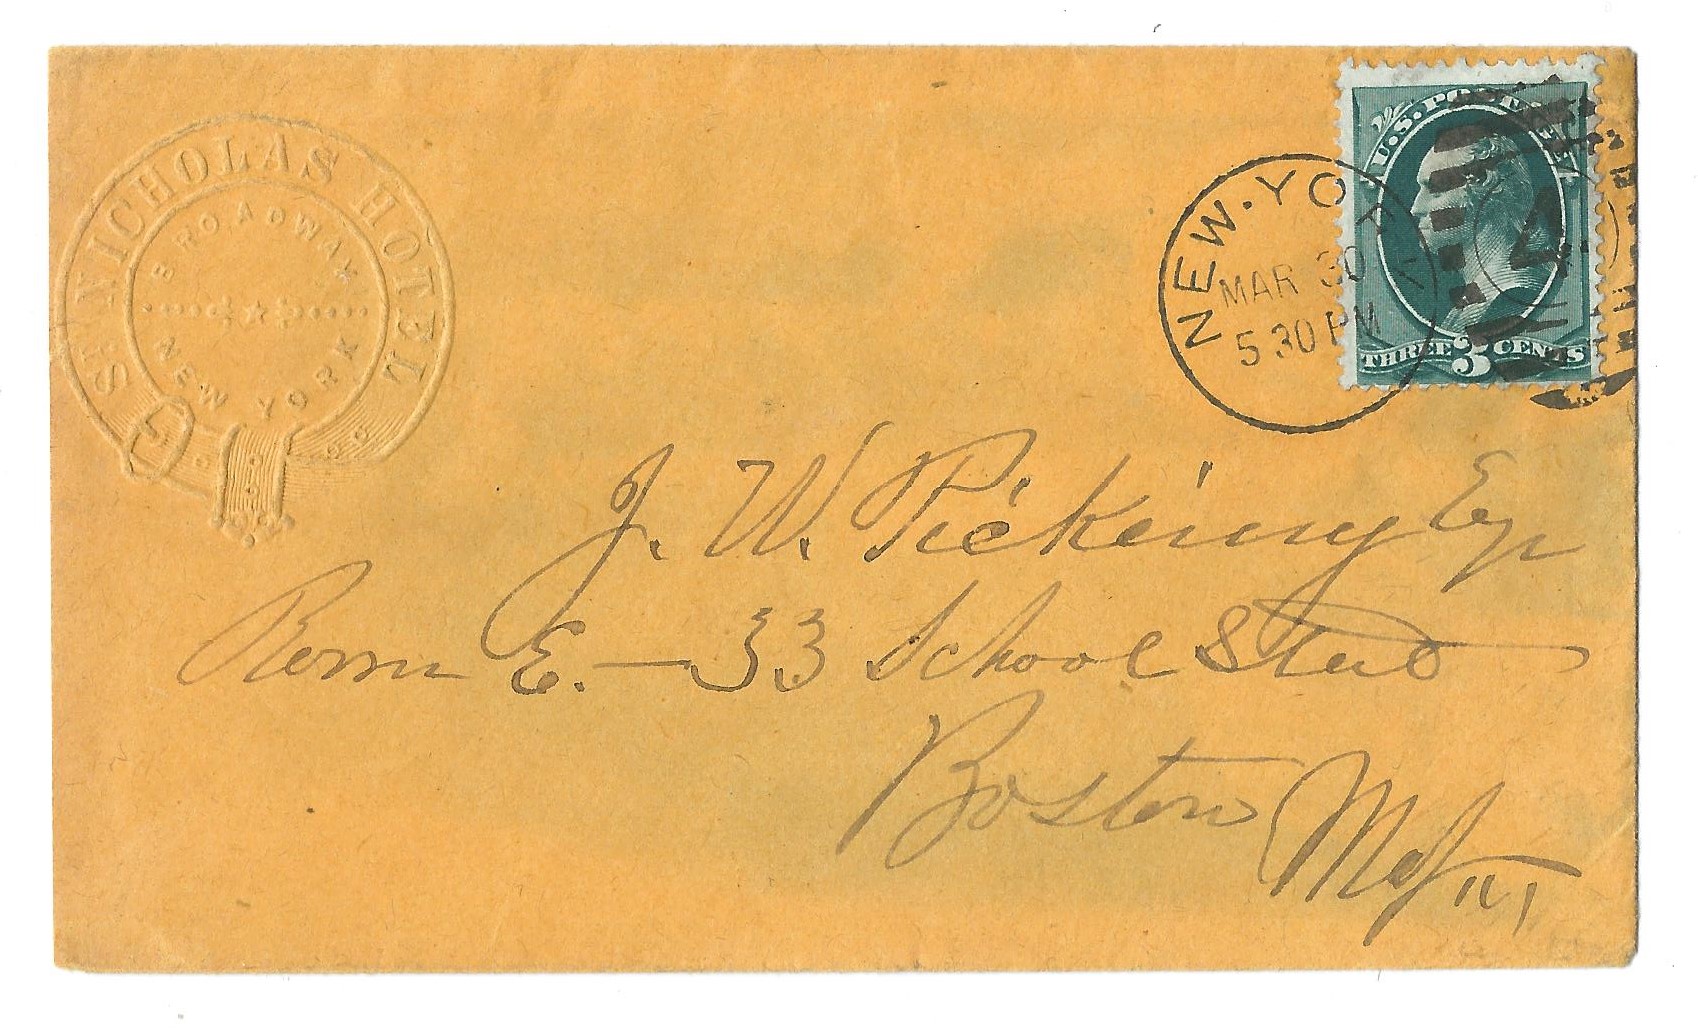 ST. NICHOLAS HOTEL
BROADWAY
NEW YORK
U.S. POSTAGE
THREE 3 CENTS
NEW-YORK
MAR 30
5 30 PM
J. W. Pickering Esq
Room E. — 33 School Street
Boston Mass